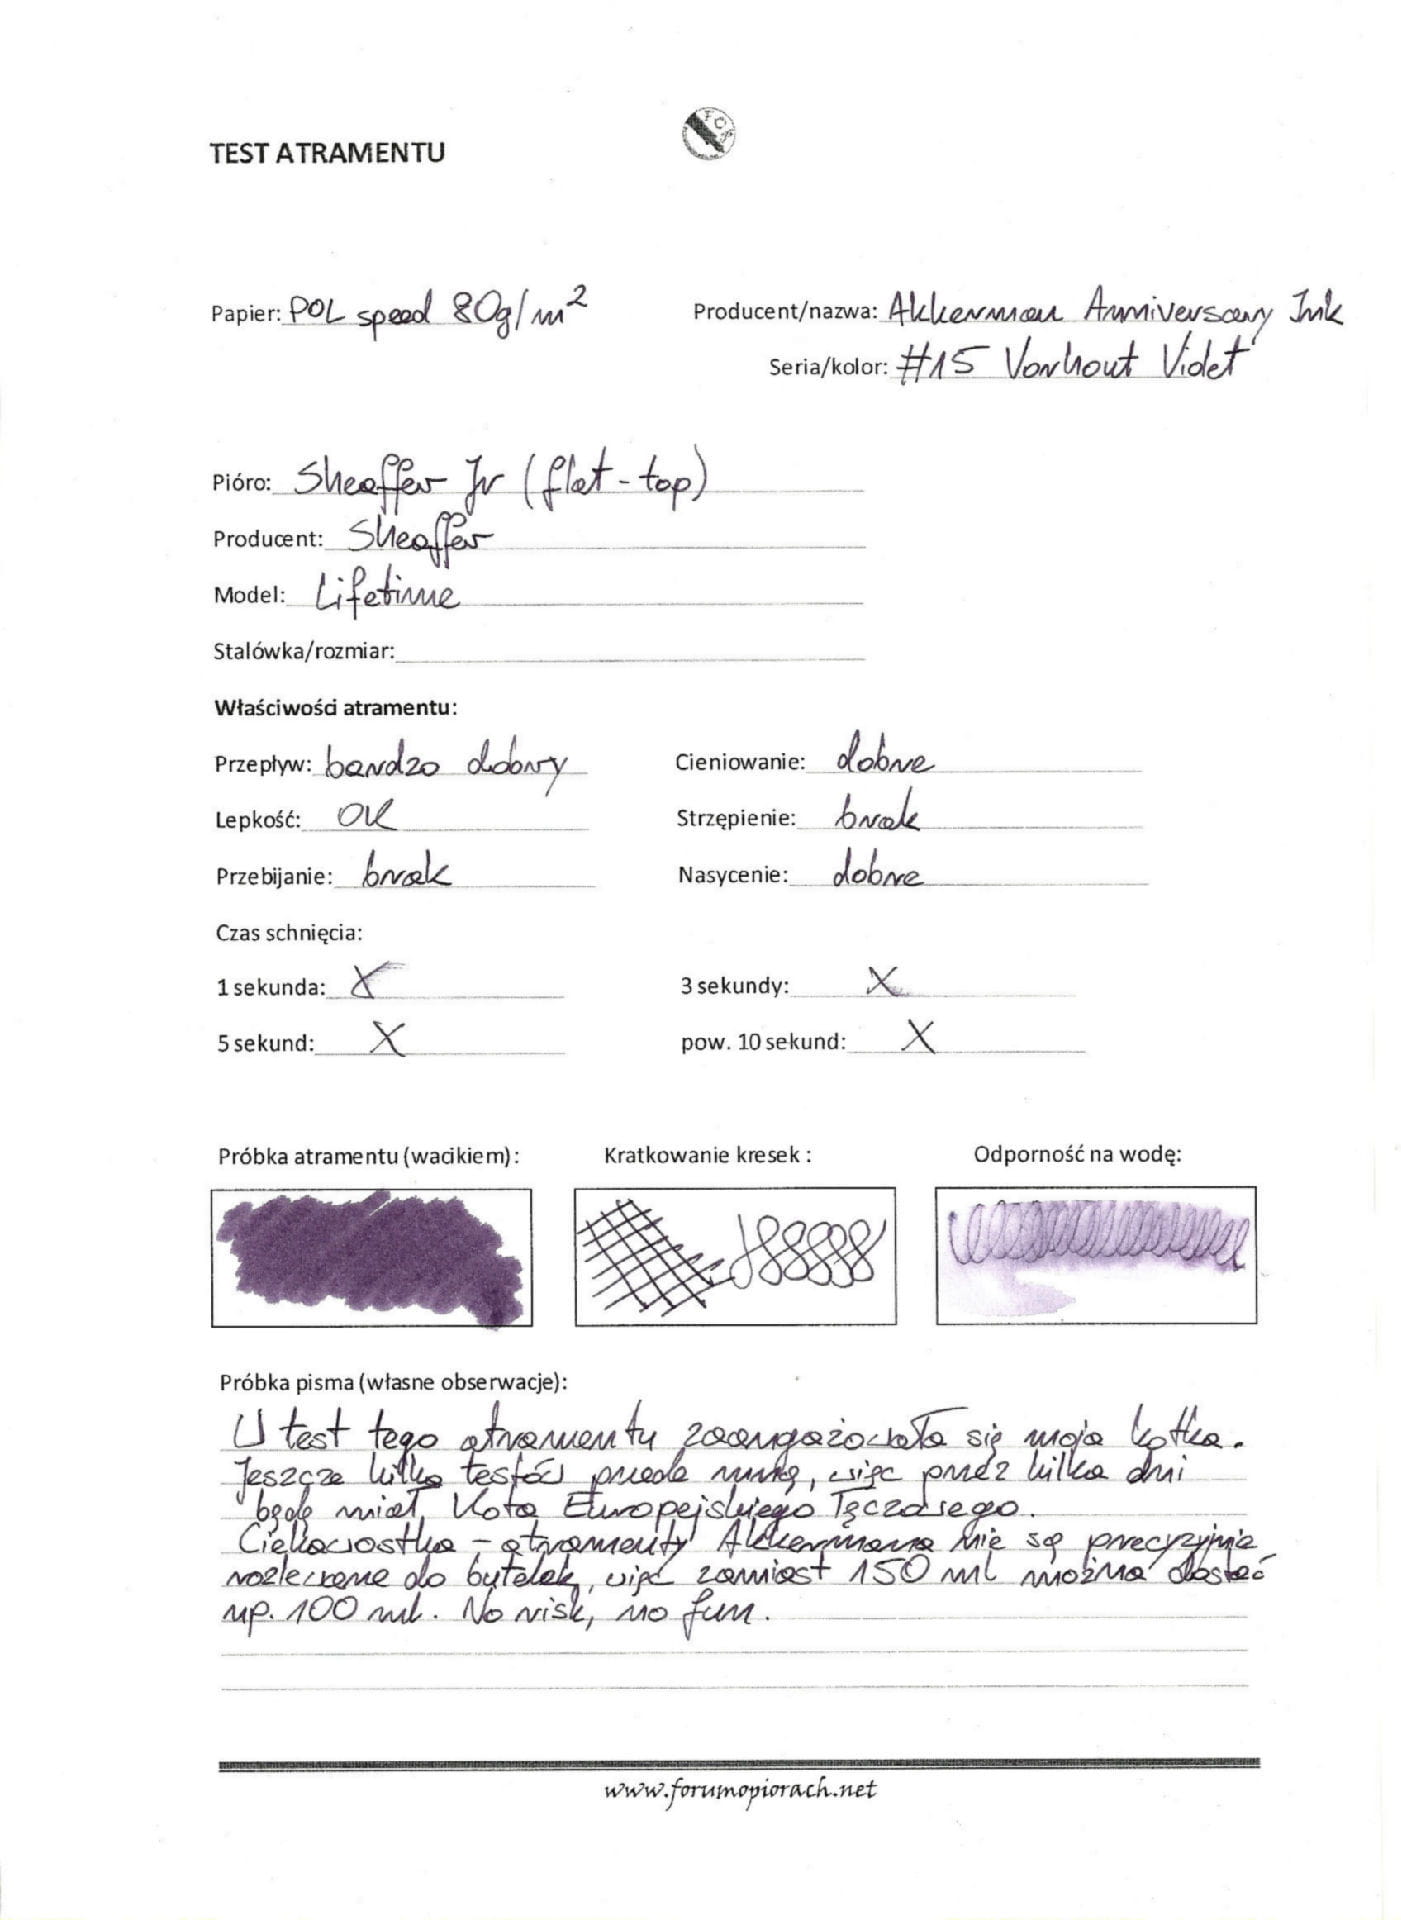 TEST ATRAMENTU
FOP
Papier: POL speed 80g/m²
Producent/nazwa: Akkerman Anniversary Ink
Seria/kolor: #15 Vorhout Violet
Pióro: Sheaffer Jr (flat-top)
Producent: Sheaffer
Model: Lifetime
Stalówka/rozmiar:
Właściwości atramentu:
Przepływ: bardzo dobry Cieniowanie: dobre
Lepkość: OK Strzępienie: brak
Przebijanie: brak Nasycenie: dobre
Czas schnięcia:
1 sekunda: X 3 sekundy: X
5 sekund: X pow. 10 sekund: X
Próbka atramentu (wacikiem): Kratkowanie kresek : Odporność na wodę:
Próbka pisma (własne obserwacje):
W test tego atramentu zaangażowała się moja kotka.
Jeszcze kilka testów przede mną, więc przez kilka dni
będę miał Kota Europejskiego Tęczowego.
Ciekawostka - atramenty Akkermana nie są precyzyjnie
rozlewane do butelek, więc zamiast 150 ml można dostać
np. 100 ml. No risk, no fun.
www.forumopiorach.net